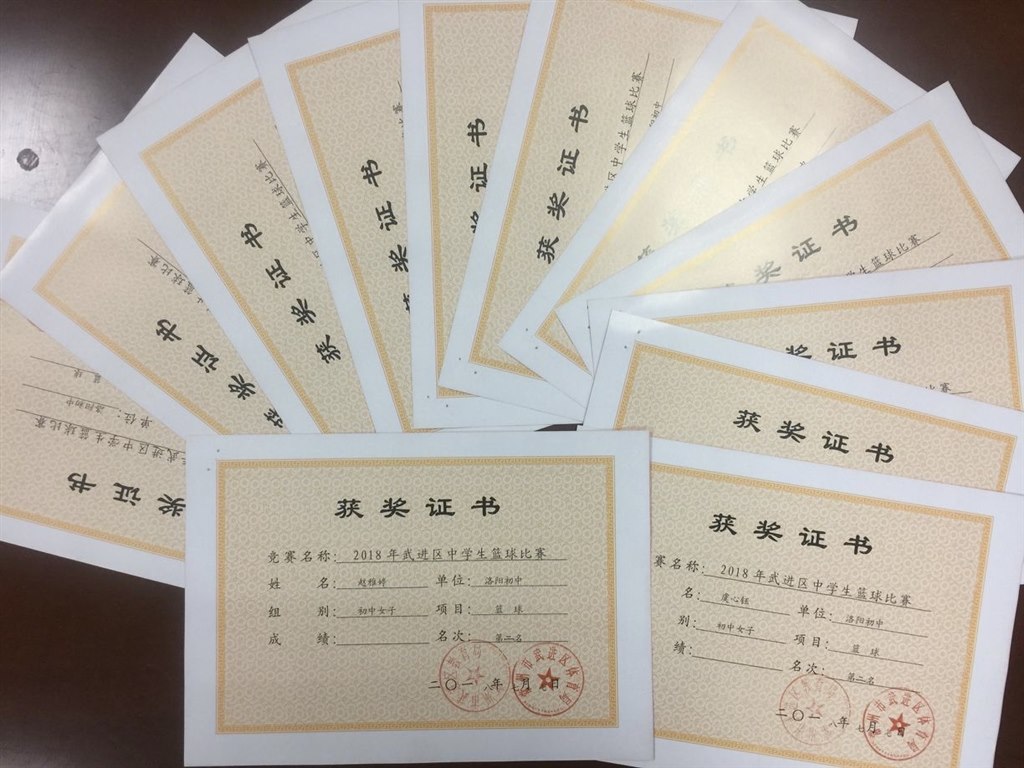 获奖证书
竞赛名称: 2018年武进区中学生篮球比赛
姓 名: 赵雅婷 单位: 洛阳初中
组 别: 初中女子 项目: 篮 球
成 绩: 名次: 第二名
二〇一八年七月 日
获奖证书
赛名称: 2018年武进区中学生篮球比赛
名: 虞心钰 单位: 洛阳初中
别: 初中女子 项目: 篮 球
绩: 名次: 第二名
二〇一八年七月 日
州市武进区体育局
获奖证书
奖证书
奖证书
学生篮球比赛
学生篮球比赛
获奖证书
区中学生篮球比赛
初中
奖证书
奖证书
获奖证书
中学生篮球比赛
获奖证书
篮球比赛
奖证书
武进区中学生篮球比赛
单位: 洛阳初中
篮 球